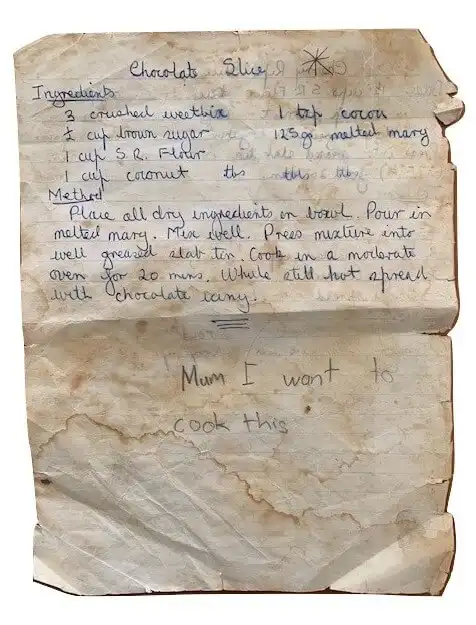 Chocolate Slice
Ingredients
3 crushed weetbix 1 tsp cocoa
½ cup brown sugar 125g melted marg
1 cup S.R. Flour
1 cup coconut
Method
Place all dry ingredients in bowl. Pour in
melted marg. Mix well. Press mixture into
well greased slab tin. Cook in a moderate
oven for 20 mins. While still hot spread
with chocolate icing.
Mum I want to
cook this